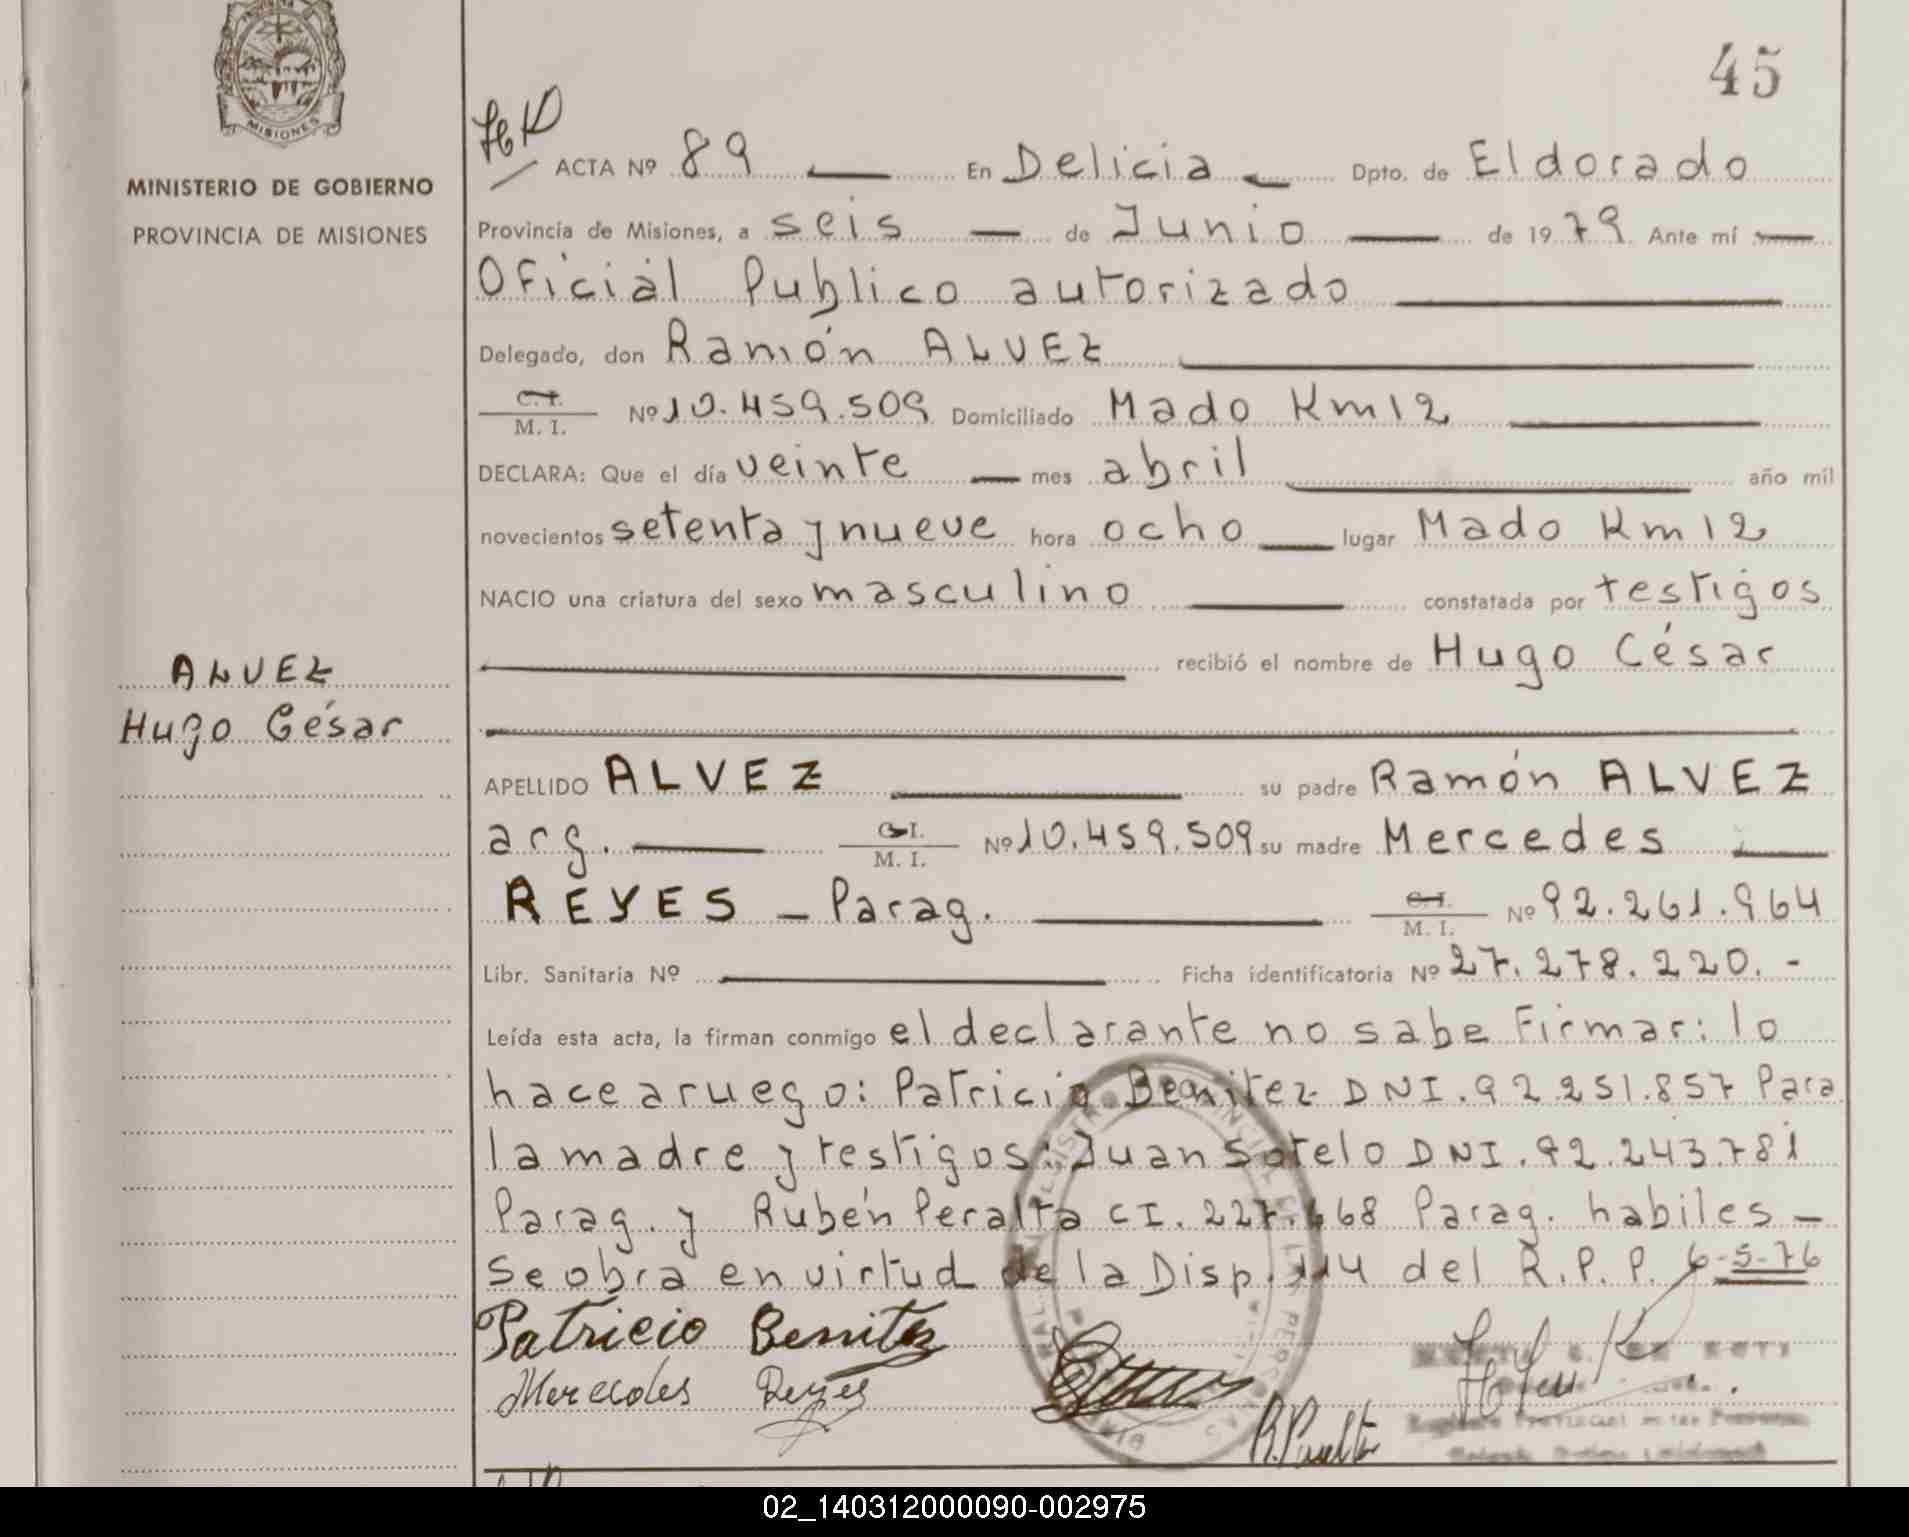 MISIONES
45
MINISTERIO DE GOBIERNO
PROVINCIA DE MISIONES
ACTA Nº 89 En Delicia Dpto. de Eldorado
Provincia de Misiones, a seis de Junio de 1979. Ante mí
Oficial Publico autorizado
Delegado, don Ramón ALVEZ
C. I. M. I. Nº 10.459.509 Domiciliado Mado Km12
DECLARA: Que el día veinte mes abril año mil
novecientos setenta y nueve hora ocho lugar Mado Km12
NACIO una criatura del sexo masculino constatada por testigos
recibió el nombre de Hugo César
ALVEZ
Hugo César
APELLIDO ALVEZ su padre Ramón ALVEZ
arg. C. I. M. I. Nº 10.459.509 su madre Mercedes
REYES - Parag. C. I. M. I. Nº 92.261.964
Libr. Sanitaria Nº Ficha identificatoria Nº 27.278.220.-
Leída esta acta, la firman conmigo el declarante no sabe Firmar: lo
hace a ruego: Patricio Benitez DNI. 92.251.857 Para
la madre y testigos: Juan Sotelo DNI. 92.243.781
Parag. y Rubén Peralta CI. 227.668 Parag. habiles -
Se obra en virtud de la Disp. 114 del R.P.P. 6-5-76
Patricio Benitez
Mercedes Reyes
02_140312000090-002975